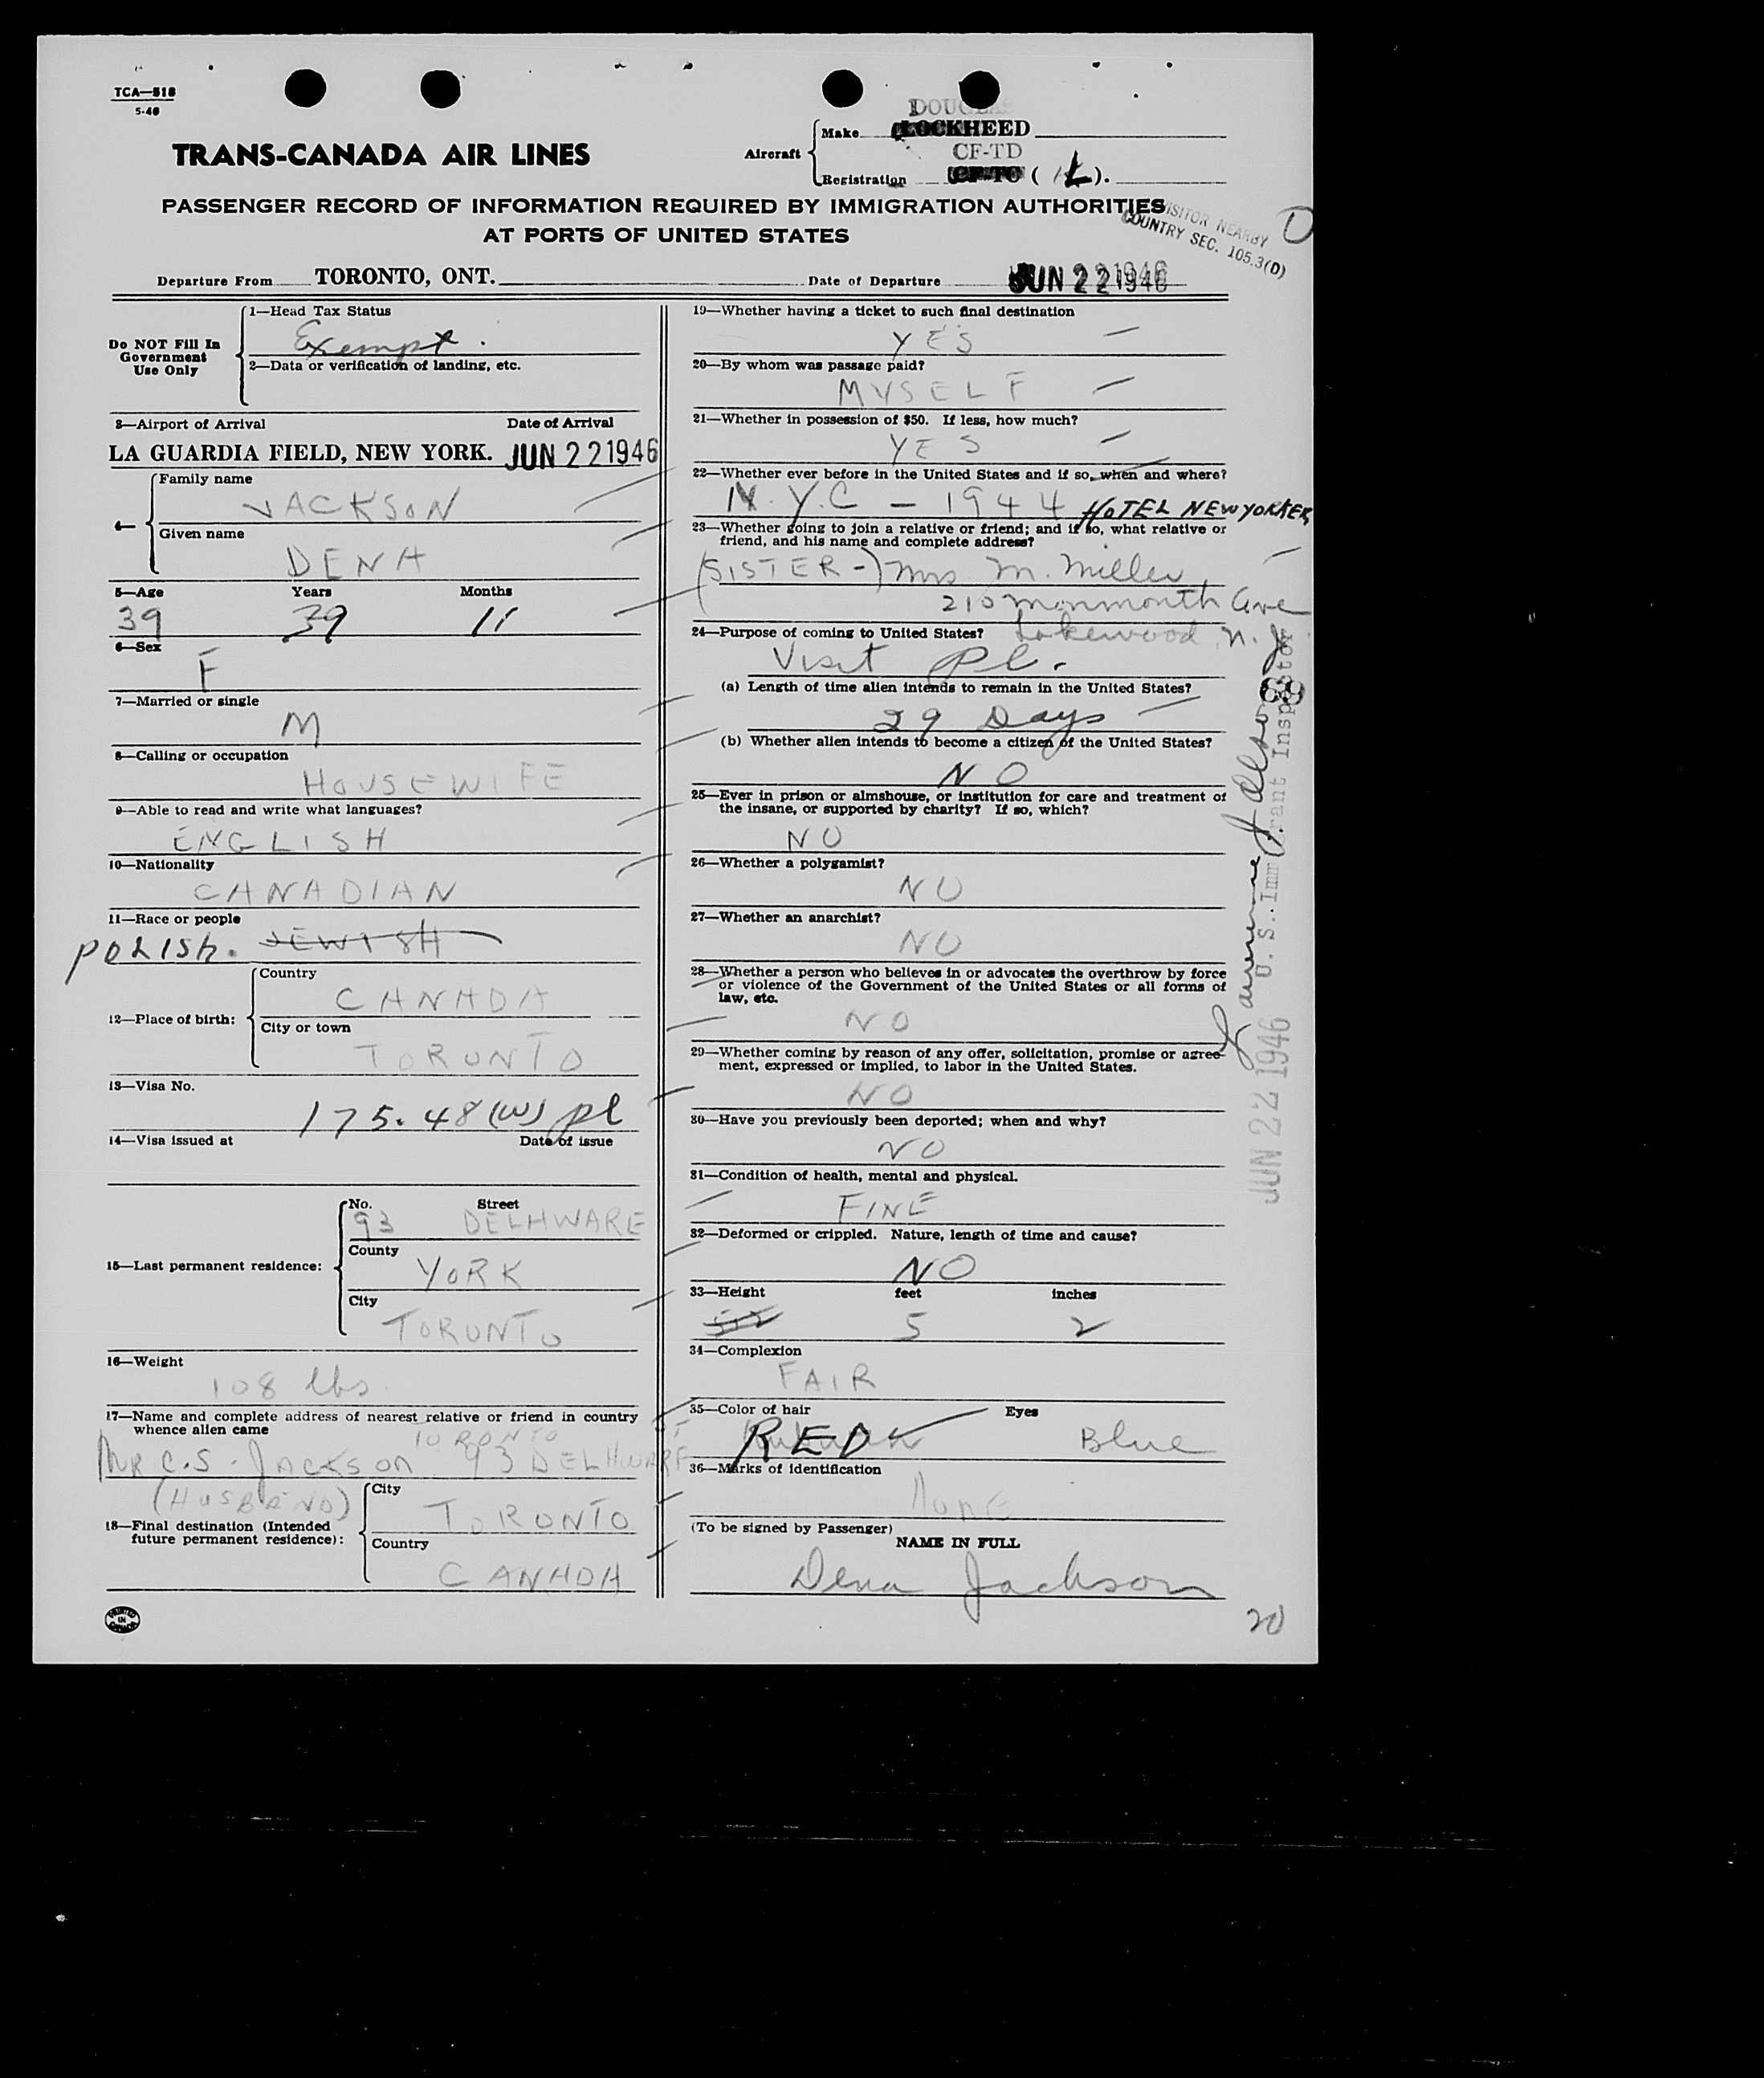 TCA—518
5-46
TRANS-CANADA AIR LINES
Aircraft
DOUGLAS
Make LOCKHEED
CF-TD
Registration CF-TC ( L ).
PASSENGER RECORD OF INFORMATION REQUIRED BY IMMIGRATION AUTHORITIES
AT PORTS OF UNITED STATES
VISITOR NEARBY
COUNTRY SEC. 105.3(D)
D
Departure From TORONTO, ONT. Date of Departure JUN 22 1946
Do NOT Fill In
Government
Use Only
1—Head Tax Status
Exempt.
2—Data or verification of landing, etc.
3—Airport of Arrival Date of Arrival
LA GUARDIA FIELD, NEW YORK. JUN 22 1946
4—
Family name
JACKSON
Given name
DENA
5—Age Years Months
39 39 11
6—Sex
F
7—Married or single
M
8—Calling or occupation
HOUSEWIFE
9—Able to read and write what languages?
ENGLISH
10—Nationality
CANADIAN
11—Race or people
POLISH. JEWISH
12—Place of birth:
Country
CANADA
City or town
TORONTO
13—Visa No.
175.48 (W) pl
14—Visa issued at Date of issue
15—Last permanent residence:
No. Street
93 DELAWARE
County
YORK
City
TORONTO
16—Weight
108 lbs.
17—Name and complete address of nearest relative or friend in country
whence alien came
TORONTO
MR C.S. JACKSON 93 DELAWARE
(HUSBAND)
18—Final destination (Intended
future permanent residence):
City
TORONTO
Country
CANADA
PRINTED
IN
CANADA
19—Whether having a ticket to such final destination
YES
20—By whom was passage paid?
MYSELF
21—Whether in possession of $50. If less, how much?
YES
22—Whether ever before in the United States and if so, when and where?
N.Y.C — 1944 HOTEL NEW YORKER
23—Whether going to join a relative or friend; and if so, what relative or
friend, and his name and complete address?
(SISTER-) Mrs. M. Miller,
210 Monmonth Ave
Lakewood, N.J
24—Purpose of coming to United States?
Visit Pl.
(a) Length of time alien intends to remain in the United States?
29 Days
(b) Whether alien intends to become a citizen of the United States?
NO
25—Ever in prison or almshouse, or institution for care and treatment of
the insane, or supported by charity? If so, which?
NO
26—Whether a polygamist?
NO
27—Whether an anarchist?
NO
28—Whether a person who believes in or advocates the overthrow by force
or violence of the Government of the United States or all forms of
law, etc.
NO
29—Whether coming by reason of any offer, solicitation, promise or agree-
ment, expressed or implied, to labor in the United States.
NO
30—Have you previously been deported; when and why?
NO
31—Condition of health, mental and physical.
FINE
32—Deformed or crippled. Nature, length of time and cause?
NO
33—Height feet inches
5 2
34—Complexion
FAIR
35—Color of hair Eyes
RED Blue
36—Marks of identification
None
(To be signed by Passenger)
NAME IN FULL
Dena Jackson
20
69
U. S. Immigrant Inspector
JUN 22 1946